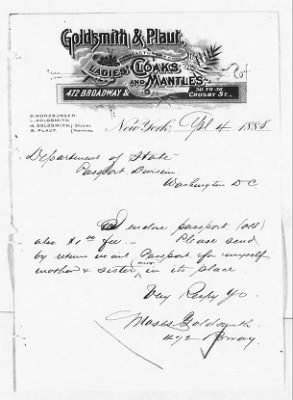 Goldsmith & Plaut,
LADIES' CLOAKS
AND MANTLES.
472 BROADWAY & 36 TO 38
CROSBY ST.,
L. GOLDSMITH.
M. GOLDSMITH, Special
S. PLAUT. Partners
New York, Apl 4 1888
Department of State
Passport Division
Washington D C
I enclose passport (old)
also $1.00 fee. Please send
by return mail Passport for myself
mother & sister (minor) in its place
Very Respy Yo.
Moses Goldsmith
472 Bway.